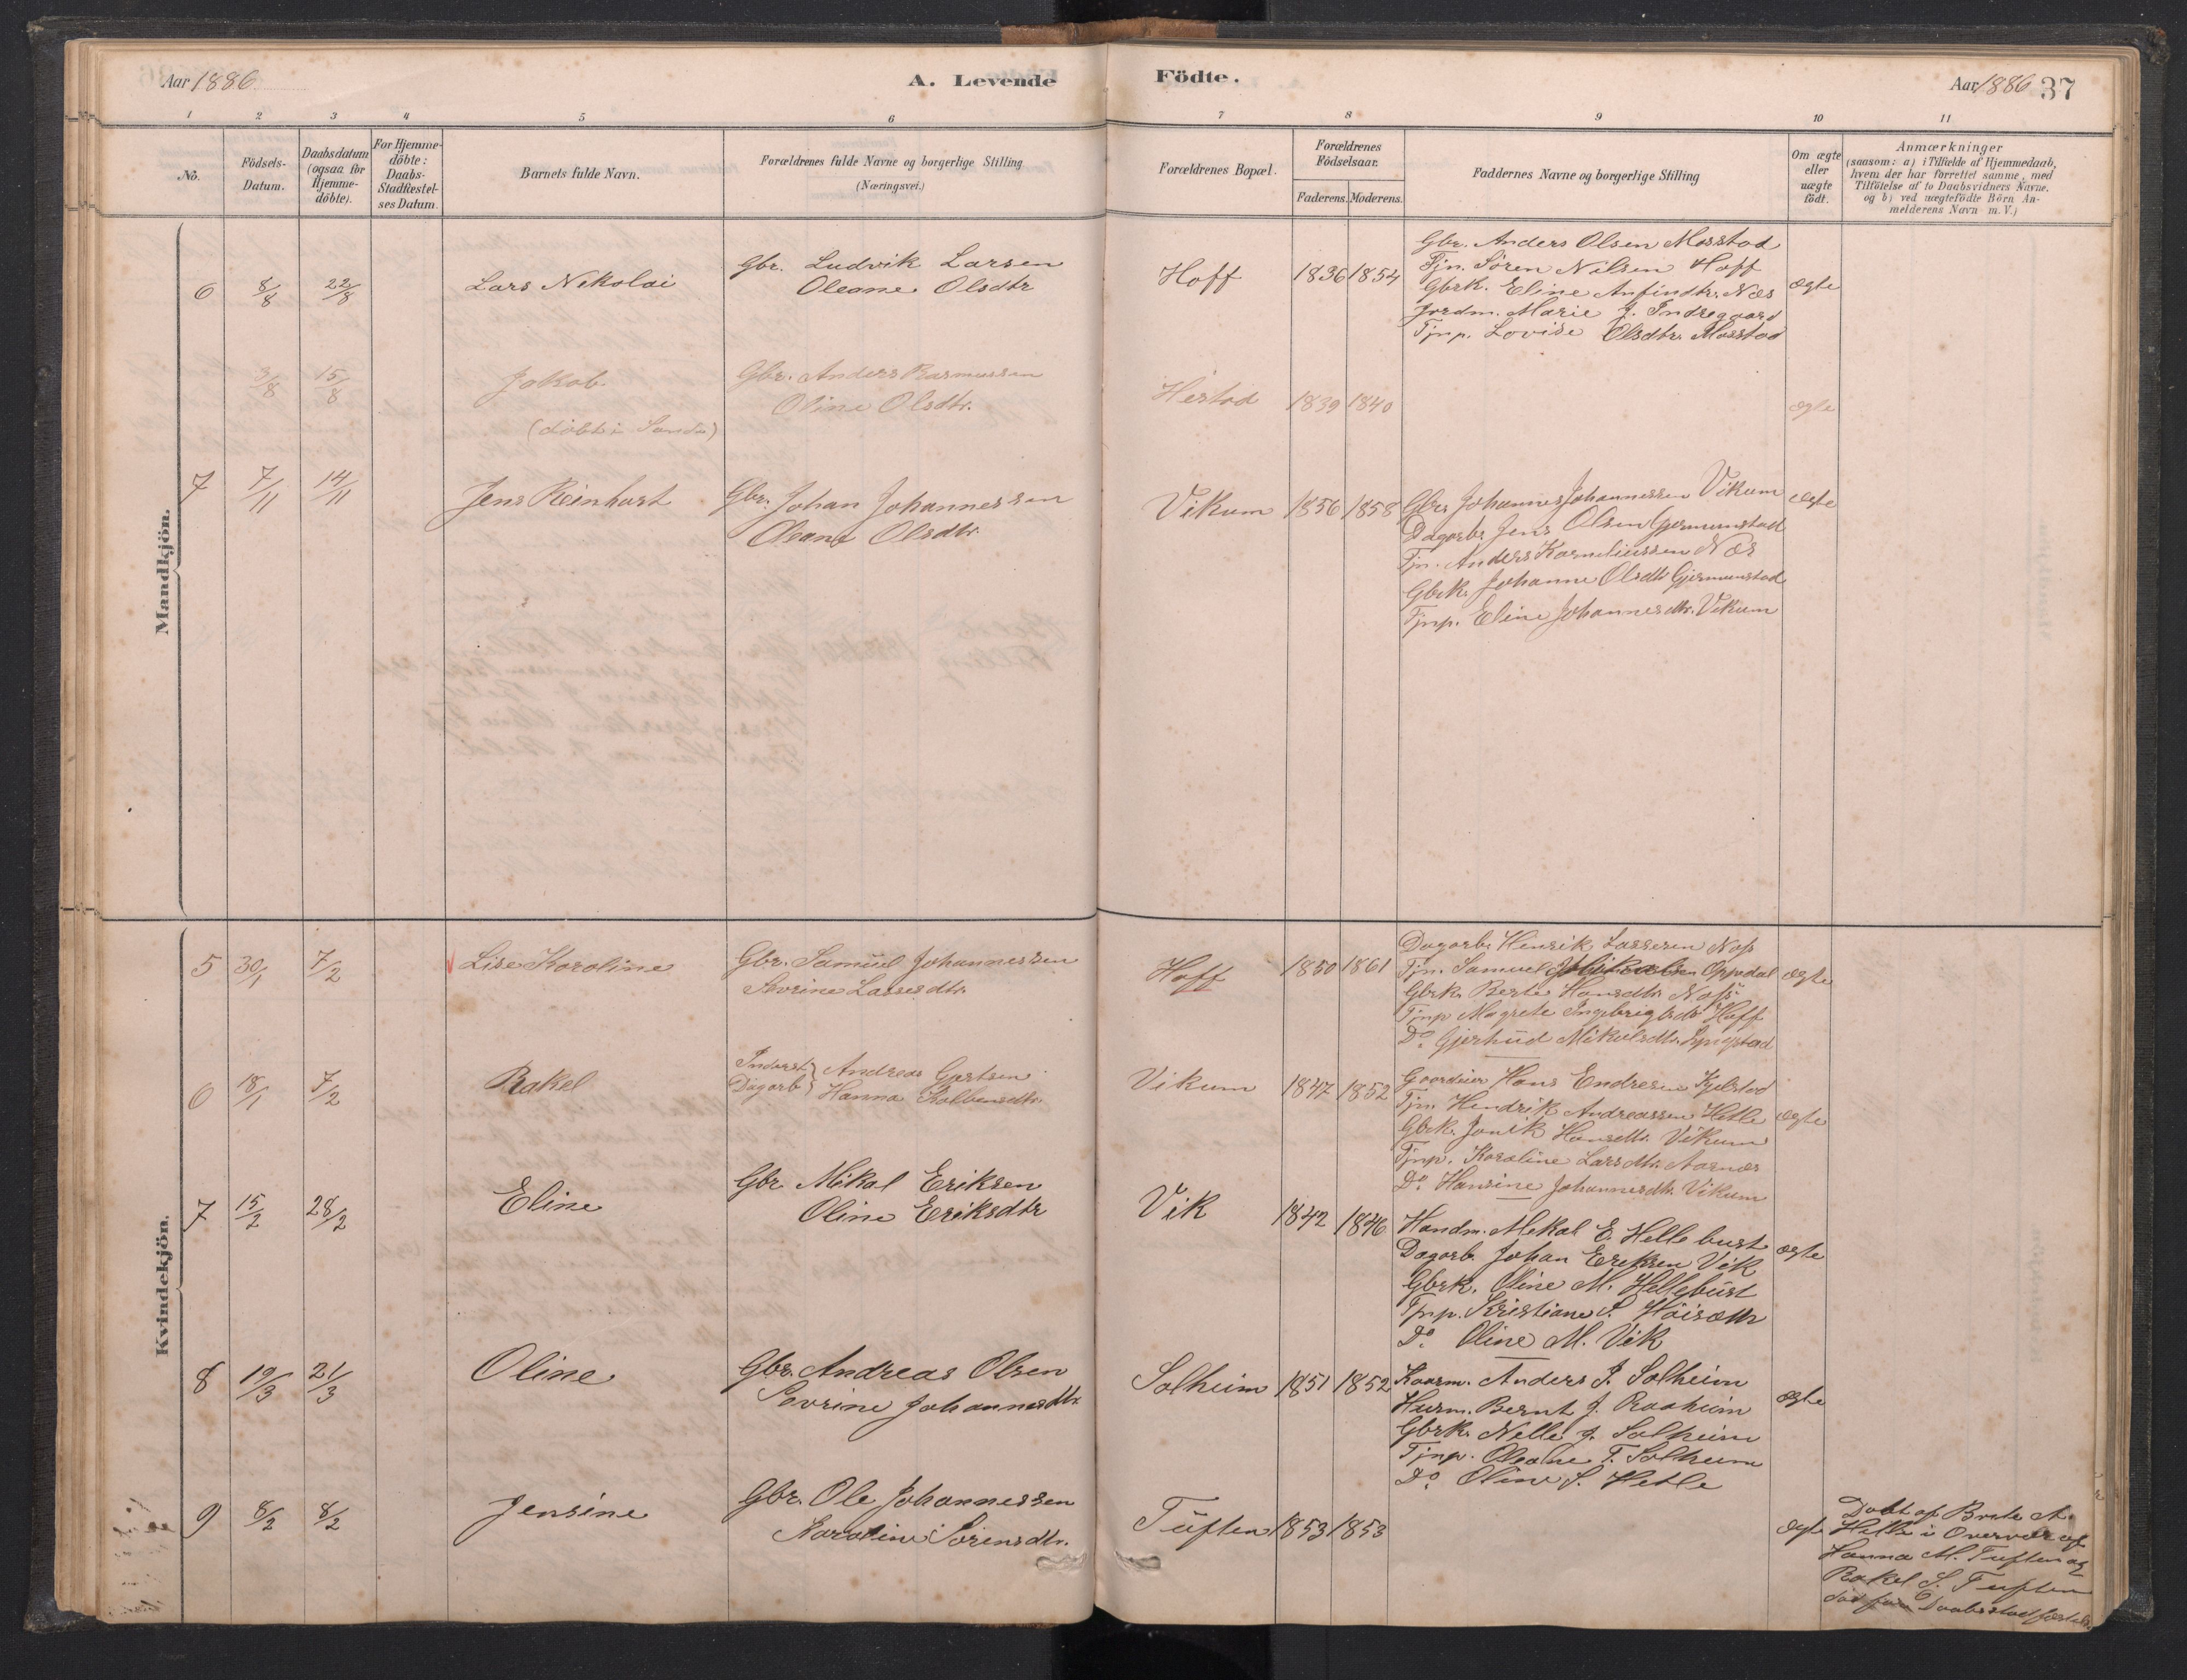 Aar 1886
A. Levende
Födte.
Aar 1886
37
1
2
3
4
5
6
7
8
9
10
11
No.
Födsels-
Datum.
Daabsdatum
(ogsaa for
Hjemme-
döbte).
For Hjemme-
döbte:
Daabs-
Stadfæstel-
ses Datum.
Barnets fulde Navn.
Forældrenes fulde Navne og borgerlige Stilling
(Næringsvei.)
Forældrenes Bopæl.
Forældrenes
Födselsaar.
Faderens. Moderens.
Faddernes Navne og borgerlige Stilling
Om ægte
eller
uægte
födt.
Anmærkninger
(saasom: a) i Tilfælde af Hjemmedaab,
hvem der har forrettet samme, med
Tilföielse af to Daabsvidners Navne.
og b) ved uægtefödte Börn An-
melderens Navn m. V.)
Mandkjön.
6 8/8 22/8 Lars Nikolai
Gbr. Ludvik Larsen
Oleane Olsdtr
Hoff 1836 1854
Gbr. Anders Olsen Mosstad
Tjn. Sören Nilsen Hoff
Gbrk. Eline Anfindtr. Næs
Jordm. Marie J. Indregaard
Tjnp. Lovise Olsdtr. Mosstad
ægte
3/8 15/8 Jakob
(döbt i Sandö)
Gbr. Anders Rasmussen
Oline Olsdtr.
Hestad 1839 1840
ægte
7 7/11 14/11 Jens Reinhart
Gbr. Johan Johannessen
Oleane Olsdtr.
Vikum 1856 1858
Gbr. Johannes Johannessen Vikum
Dagarb. Jens Olsen Gjermunstad
Tjn. Anders Korneliussen Næs
Gbrk. Johanne Olsdtr Gjermunstad
Tjnp. Eline Johannesdtr. Vikum
ægte
Kvindekjön.
5 30/1 7/2 Lise Karoline
Gbr. Samuel Johannessen
Sevrine Lassesdtr.
Hoff 1850 1861
Dagarb. Henrik Lassesen Nass
Tjn. Samuel Oppdal
Gbrk. Berte Hansdtr. Nass
Tjnp Magrete Ingebrigtsdtr Hoff
Do. Gjerthud Mikalsdtr.
ægte
6 18/1 7/2 Rakel
Inderst
Dagarb } Andreas Gjertsen
Hanna Kolbensdtr.
Vikum 1847 1852
Gaardeier Hans Endresen Kjelstad
Tjn. Hendrik Andreassen Hetle
Gbrk. Janik Hansdtr. Vikum
Tjnp. Karoline Larsdtr. Aarnæs
Do. Hansine Johannesdtr. Vikum
ægte
7 15/2 28/2 Eline
Gbr. Mikal Eriksen
Oline Eriksdtr
Vik 1842 1846
Handm. Mekal E. Hellebust
Dagarb. Johan Eriksen Vik
Gbrk. Oline M. Hellebust
Tjnp. Kristiane S. Höisæth
Do. Oline M. Vik
ægte
8 19/3 21/3 Oline
Gbr. Andreas Olsen
Sevrine Johannesdtr.
Solheim 1851 1852
Kaarm. Anders J. Solheim
Husm. Bernt J. Raaheim
Gbrk. Nelle J. Solheim
Tjnp. Oleane T. Solheim
Do. Oline S. Hetle
ægte
9 8/2 8/2 Jensine
Gbr. Ole Johannessen
Karoline Sörensdtr.
Tüften 1853 1853
ægte
Döbt af Brite A.
Hetle i Overvær af
Hanna M. Tuften og
Rakel S. Tuften
död före Daabsstadfæstelse